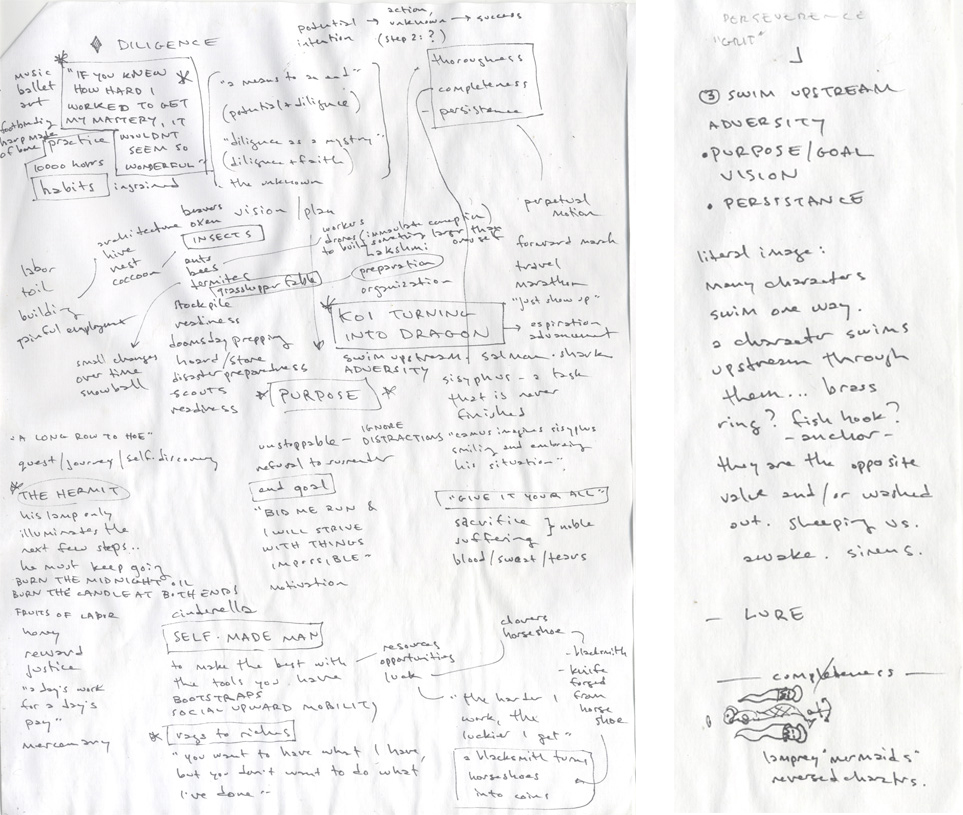 potential → action, unknown → success
intention (step 2: ?)
DILIGENCE
music
ballet
art
footbinding
harp made of bone
"IF YOU KNEW
HOW HARD I
WORKED TO GET
MY MASTERY, IT
WOULDNT
SEEM SO
WONDERFUL"
practice
10000 hours
habits ingrained
"a means to an end"
(potential + diligence)
"diligence as a mystery"
(diligence + faith)
the unknown
thoroughness
completeness
- persistence
labor
toil
building
gainful employment
architecture
hive
nest
coccoon
beavers
oxen
vision / plan
INSECTS
ants
bees
termites
grasshopper fable
stockpile
readiness
doomsday prepping
hoard/store
disaster preparedness
scouts
readiness
small changes
over time
snowball
workers
drones (immaculate conception)
to build something larger than oneself
Lakshmi
preparation
organization
perpetual
motion
forward march
travel
marathon
"just show up"
KOI TURNING
INTO DRAGON
→ aspiration
advancement
swim upstream, salmon. shark
ADVERSITY
PURPOSE
sisyphus - a task
that is never
finished
"camus imagines sisyphus
smiling and embracing
his situation".
"A LONG ROW TO HOE"
quest/journey/self-discovery
unstoppable - IGNORE DISTRACTIONS
refusal to surrender
THE HERMIT
his lamp only
illuminates the
next few steps..
he must keep going
BURN THE MIDNIGHT OIL
BURN THE CANDLE AT BOTH ENDS
end goal
"BID ME RUN &
I WILL STRIVE
WITH THINGS
IMPOSSIBLE"
motivation
"GIVE IT YOUR ALL"
sacrifice
suffering } noble
blood/sweat/tears
FRUITS OF LABOR
honey
reward
justice
"a day's work
for a day's
pay"
mercenary
cinderella
SELF-MADE MAN
to make the best with
the tools you have
BOOTSTRAPS
SOCIAL UPWARD MOBILITY
rags to riches
"you want to have what I have,
but you don't want to do what
I've done"
resources
opportunities
luck
clovers
horseshoe
- blacksmith
- knife
forged
from
horse
shoe
"the harder I
work, the
luckier I get"
a blacksmith turns
horseshoes
into coins
PERSEVERENCE
"GRIT"
③ SWIM UPSTREAM
ADVERSITY
• PURPOSE/GOAL
VISION
• PERSISTANCE
literal image:
many characters
swim one way.
a character swims
upstream through
them... brass
ring? fish hook?
- anchor -
they are the opposite
value and/or washed
out. sleeping vs.
awake. sirens.
- LURE
completeness
lamprey "mermaids"
reversed charctrs.